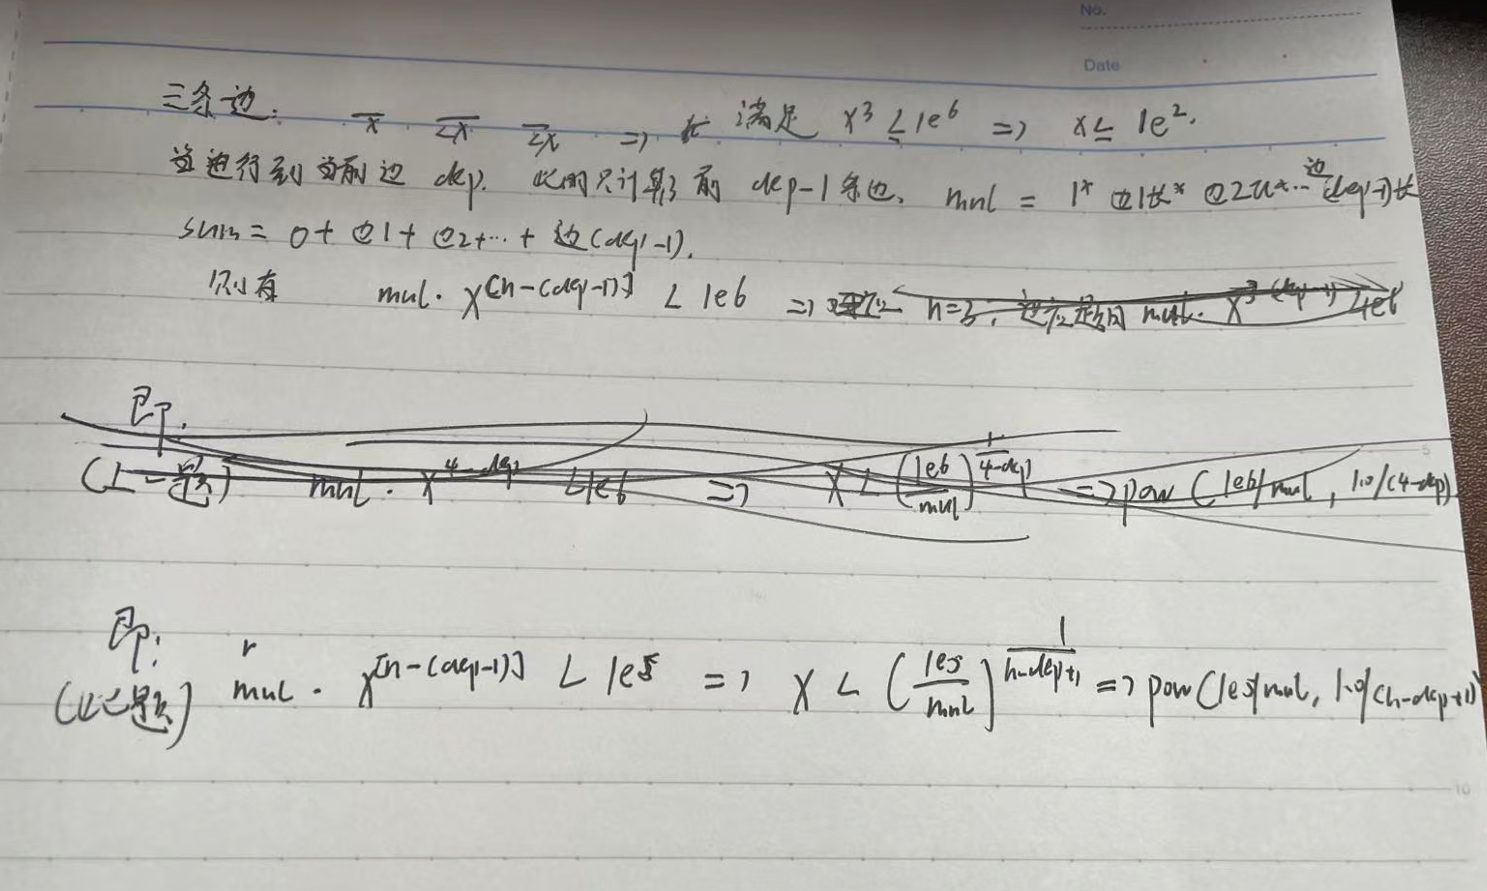 No.
Date
三条边: x ≤x ≤x => 满足 x³ ≤ 1e⁶ => x ≤ 1e².
当进行到当前边 dep. 此时只计算了前 dep-1 条边. mul = 1* 边1长* 边2长*… 边(dep-1)长
sum = 0+ 边1+ 边2+…+ 边(dep-1).
则有 mul · x^[n-(dep-1)] < 1e6 => n=3, mul · x^3-(dep-1) < 1e6
即:
mul · x^4-dep < 1e6 => x < (1e6/mul)^1/4-dep => pow(1e6/mul, 1.0/(4-dep)
5
即:
mul · x^[n-(dep-1)] < 1e5 => x < (1e5/mul)^1/n-dep+1 => pow(1e5/mul, 1.0/(n-dep+1)
10